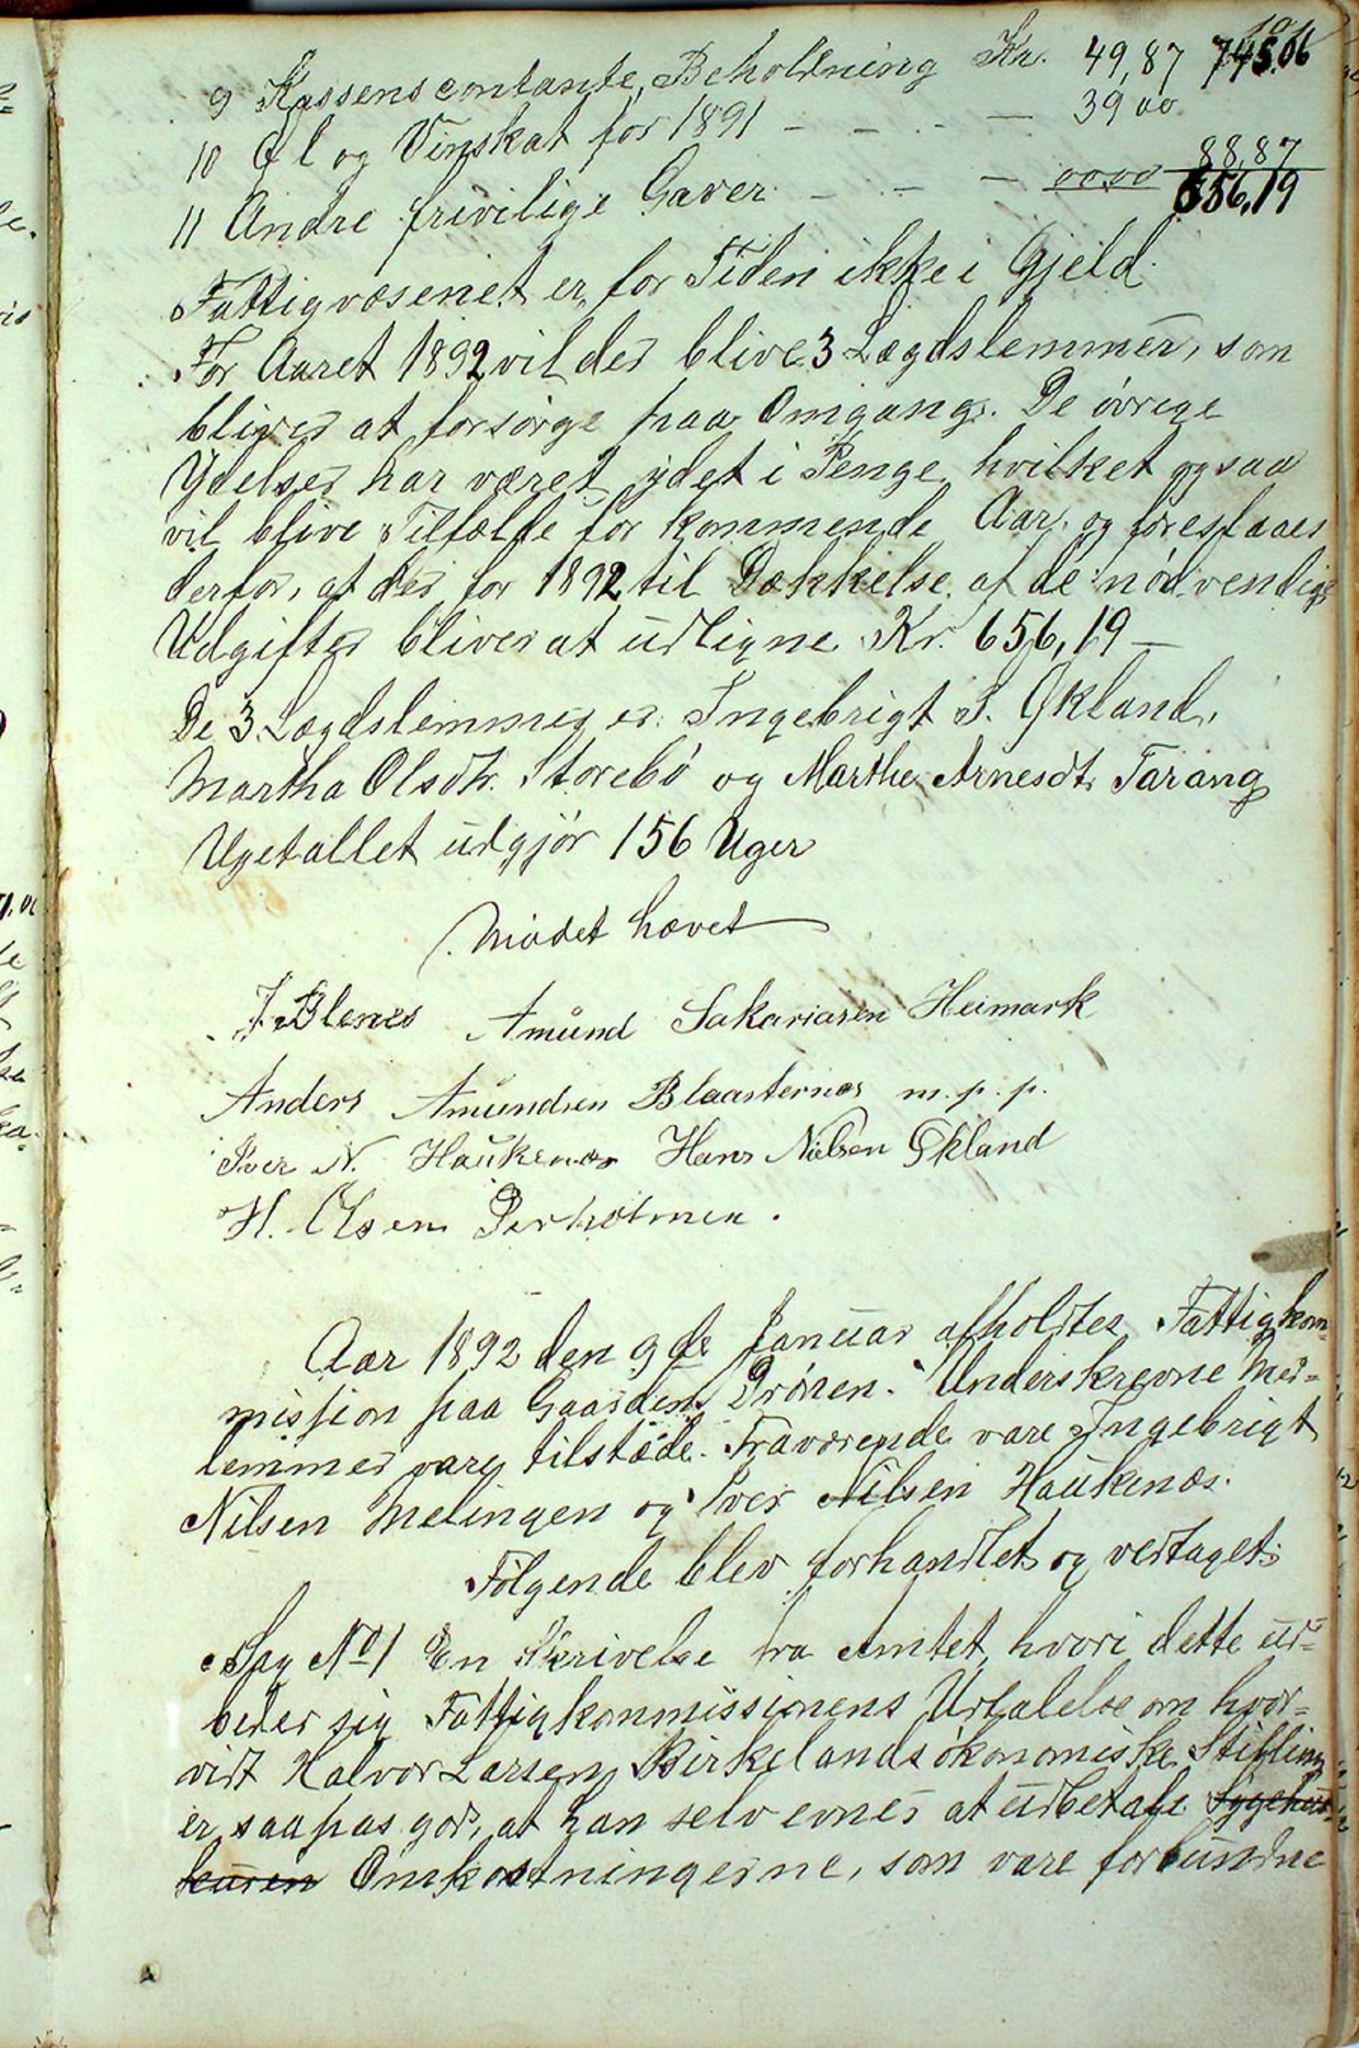 101
9 Kassens contante Beholdning Kr. 49,87 745.06
10 Øl og Vinskat for 1891 - - - - 39 00
11 Andre frivilige Gaver - - - 00.00 88,87
656,19
Fattigvæsenet er for Tiden ikke i Gjeld.
For Aaret 1892 vil der blive 3 Lægdslemmer, som
bliver at forsørge paa Omgang. De övrige
Ydelser har været ydet i Penge, hvilket ogsaa
vil blive Tilfælde for kommende Aar, og foreslaaes
derfor, at der for 1892 til Dækkelse af de nødvendige
Udgifter bliver at udligne Kr. 656,19 —
De 3 Lægdslemmer er: Ingebrigt S. Økland,
Martha Olsdtr. Storebö og Marthe Arnesdtr Tarang
Ugetallet udgjör 156 Uger
Mödet hævet
J. Blenes Amund Sakariasen Heimark
Anders Amundsen Blaasternæs m.p.p.
Iver N. Haukenæs Hans Nielsen Økland
H. Olsen Perholmen.
Aar 1892 den 9de Januar afholdtes Fattigkom-
mission paa Gaarden Drönen. Underskrevne Med-
lemmer vare tilstede. Fraværende vare Ingebrigt
Nilsen Melingen og Iver Nilsen Haukenæs.
Fölgende blev forhandlet og vedtaget:
Sag No 1 En Skrivelse fra Amtet, hvori dette ud-
beder sig Fattigkommissionens Udtalelse om hvor-
vidt Halvor Larsen Birkelands ökonomiske Stilling
er saapas god, at han selv evner at udbetale Sygehus-
kuren Omkostningerne, som vare forbundne